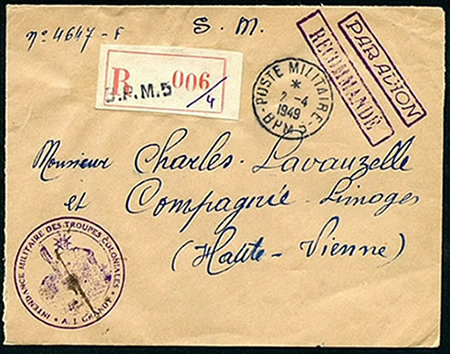 S. M.
n° 4647-F
R 006
B.P.M.5
/4
POSTE MILITAIRE
*
2-4
1949
BPM 5
RECOMMANDÉ
PAR AVION
Monsieur Charles-Lavauzelle
et Compagnie-Limoges
(Haute-Vienne)
INTENDANCE MILITAIRE DES TROUPES COLONIALES